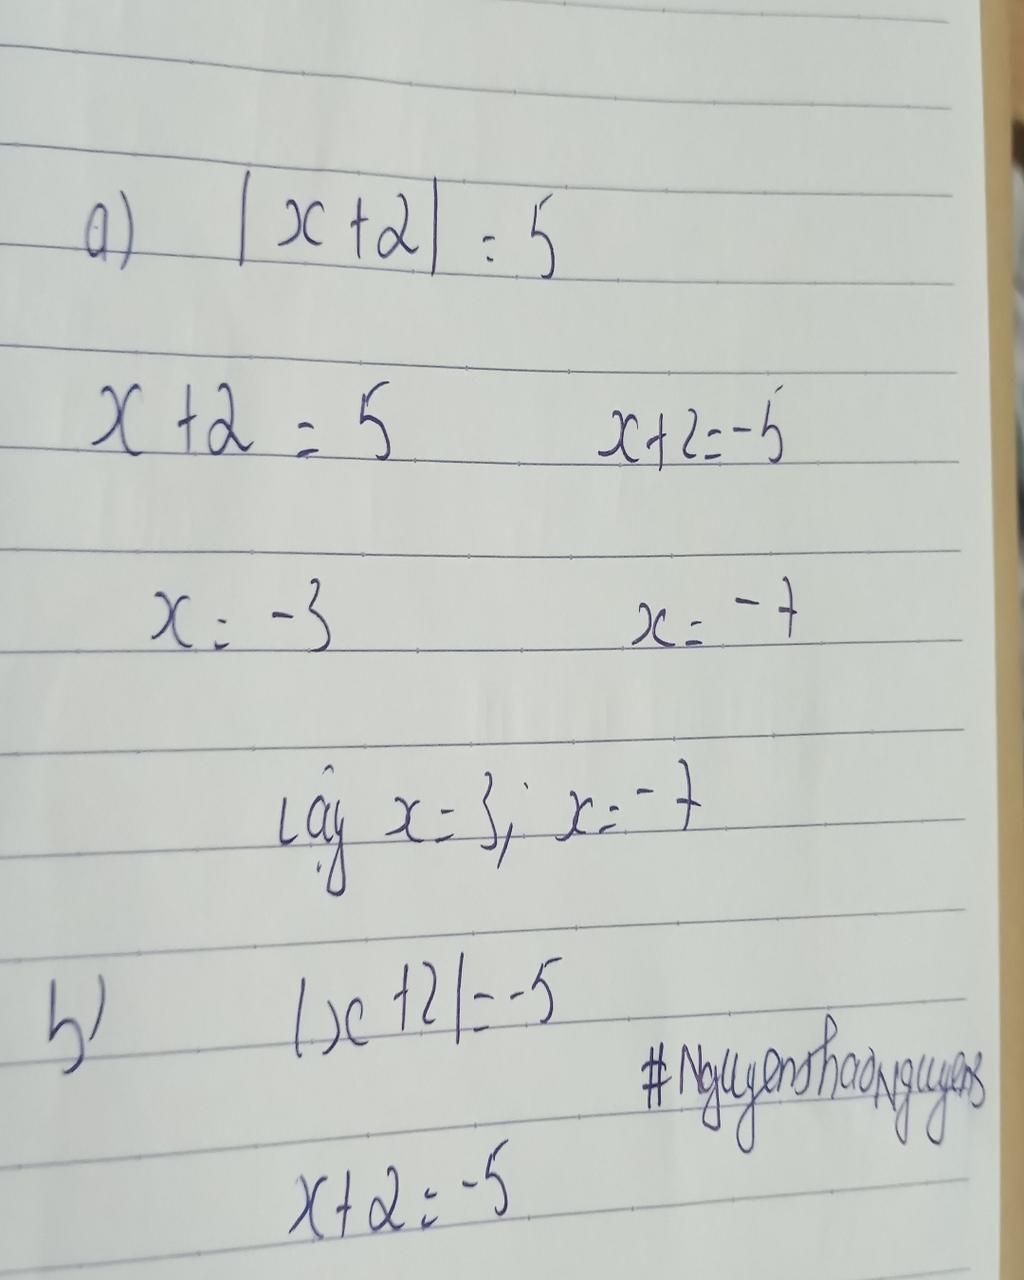 a) |x+2| = 5
x+2 = 5 x+2=-5
x= -3 x= -7
Lậy x=3; x=-7
b) |x+2|=-5
#NguyenthaoNguyens
x+2=-5